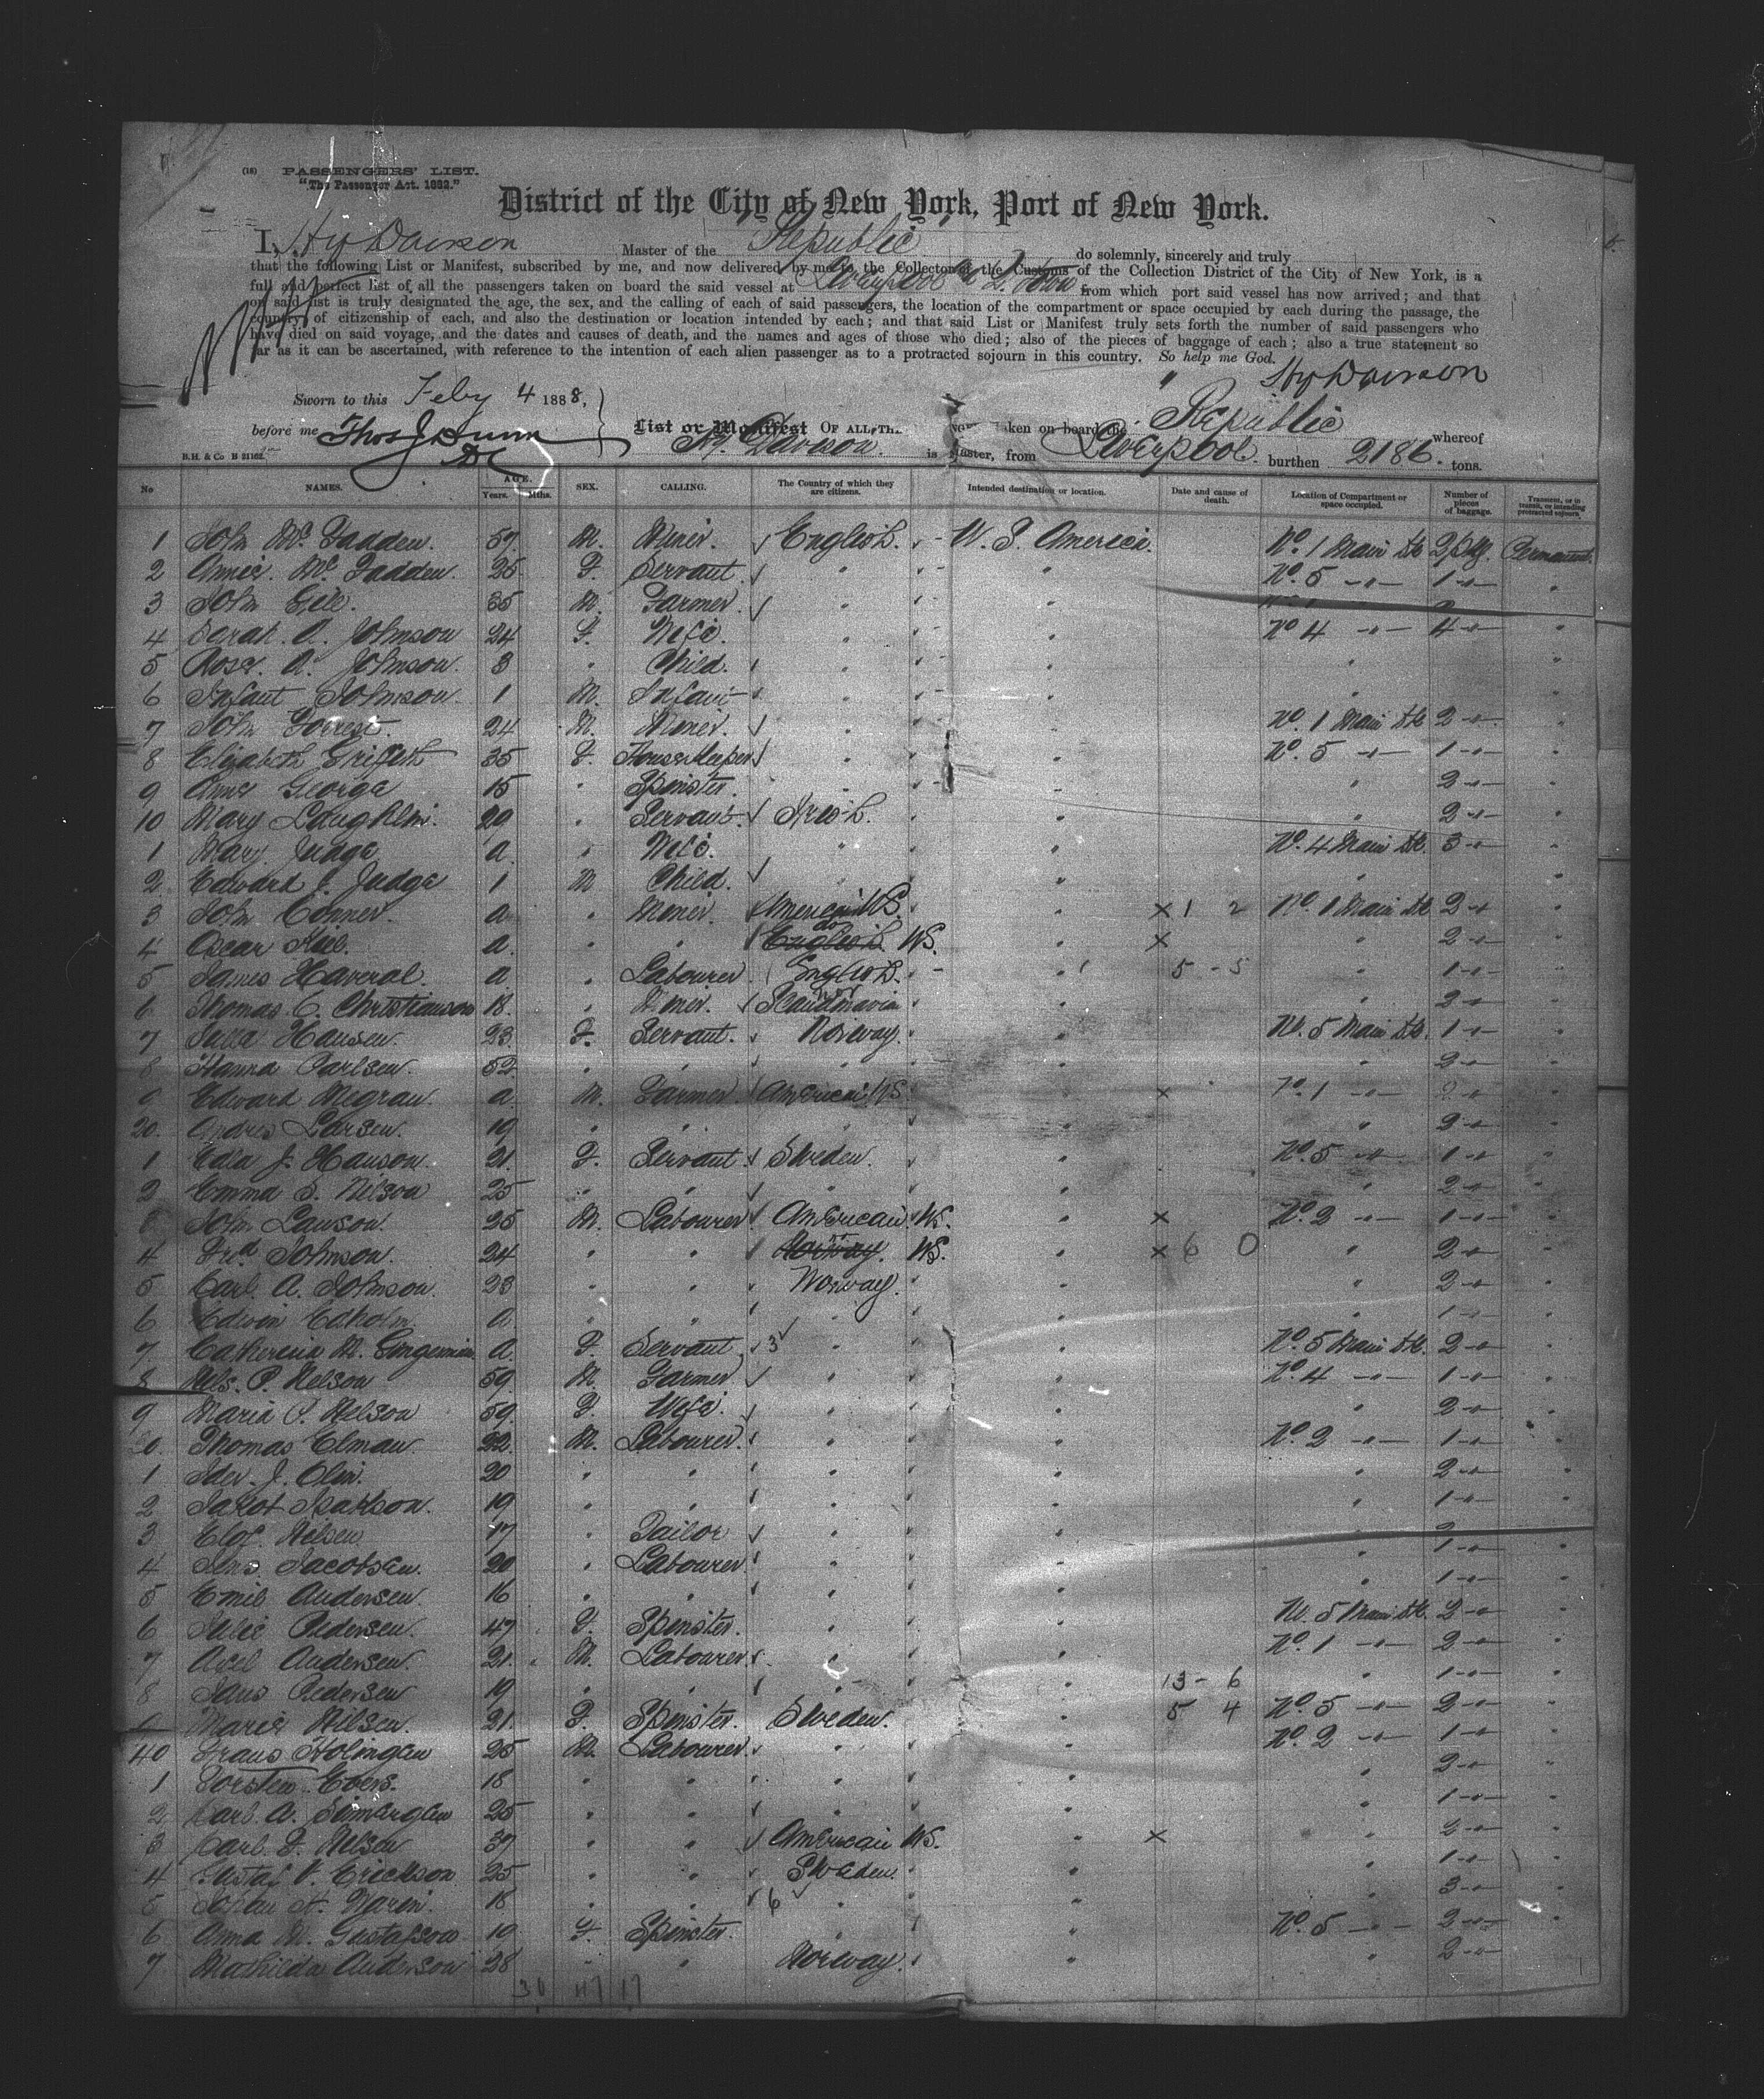 (18) PASSENGERS' LIST.
"The Passenger Act. 1882."
District of the City of New York, Port of New York.
I, Hy Davison Master of the "Republic" do solemnly, sincerely and truly
that the following List or Manifest, subscribed by me, and now delivered by me to the Collector of the Customs of the Collection District of the City of New York, is a
full and perfect list of all the passengers taken on board the said vessel at Liverpool & Q. Town from which port said vessel has now arrived; and that
on said list is truly designated the age, the sex, and the calling of each of said passengers, the location of the compartment or space occupied by each during the passage, the
country of citizenship of each, and also the destination or location intended by each; and that said List or Manifest truly sets forth the number of said passengers who
have died on said voyage, and the dates and causes of death, and the names and ages of those who died; also of the pieces of baggage of each; also a true statement so
far as it can be ascertained, with reference to the intention of each alien passenger as to a protracted sojourn in this country. So help me God.
Hy Davison
Sworn to this Feby 4 1888,
before me Thos J Dunn List or Manifest OF ALL TH taken on board the Republic whereof
DC
B.H. & Co B 21162. H. Davison is Master, from Liverpool. burthen 2186. tons.
No NAMES. AGE. Years. Mths. SEX. CALLING. The Country of which they are citizens. Intended destination or location. Date and cause of death. Location of Compartment or space occupied. Number of pieces of baggage. Transient, or in transit, or intending protracted sojourn.
1 John Mc Fadden. 57 M. Miner. English. U. S. America. No. 1 Main Dk 2 Pkg. Permanent.
2 Annie Mc Fadden. 25 F. Servant. " " No. 5 -"- 1 -"- "
3 John Gill. 35 M. Farmer. " "
4 Sarah. A. Johnson 24 F. Wife. " " No 4 -"- 4 -"- "
5 Rose. A. Johnson. 3 " Child. " " " "
6 Infant Johnson 1 M. Infant " " " "
7 John Forrest. 24 M. Miner. " " No. 1 Main Dk 2 -"- "
8 Elizabeth Griffith 35 F. Housekeeper " " No. 5 -"- 1 -"- "
9 Anne George 15 " Spinster. " " " 2 -"- "
10 Mary Laughlin. 20 " Servant. Irish. " " 2 -"- "
1 Mary Judge a " Wife. " " No. 4 Main Dk. 3 -"- "
2 Edward J. Judge 1 M Child. " " " "
3 John Conner. a " Miner. American US. " X 1 2 No. 1 Main Dk 2 -"- "
4 Oscar a. " " do English US. " X " 2 -"- "
5 James Haveral. a " Labourer English. " 5 - 5 " 1 -"- "
6 Thomas C. Christianson 18. " Miner. Scandinavia " " 2 -"- "
7 Julia Hansen. 23. F. Servant. Norway. " No. 5 Main Dk. 1 -"- "
8 Hanna Carlsen. 52 " " " " " 2 -"- "
9 Edward Megraw. a M. Farmer American US " X No. 1 -"- 2 -"- "
20. Andres Larsen. 19 " " " " " 2 -"- "
1 Edla J. Hanson. 21. F. Servant. Sweden. " No. 5 -"- 1 -"- "
2 Emma S. Nilson 25 " " " " " 2 -"- "
3 John Lawson. 25 M. Labourer American. US. " X No. 2 -"- 1 -"- "
4 Fred Johnson. 24 " " Norway. US. " X 6 0 " 2 -"- "
5 Carl. A. Johnson. 23 " " Norway. " " 2 -"- "
6 Edwin Edholm. a " " " " " 1 -"- "
7 Catherine M. a. F. Servant 3 " " No. 5 Main Dk. 2 -"- "
8 Nels. P. Nelson 59. M. Farmer " " No. 4 -"- 1 -"- "
9 Maria S. Nelson 59. F. Wife. " " " 2 -"- "
30. Thomas Elman 22. M. Labourer. " " No. 2 -"- 1 -"- "
1 J. Elin. 20 " " " " " 2 -"- "
2 19 " " " " " 1 -"- "
3 Elof. Nilsen 17 " Tailor " " 2 -"- "
4 Jens. Jacobsen. 20 " Labourer. " " " 1 -"- "
5 Emil Andersen. 16 " " " " " 1 -"- "
6 Pedersen. 47 F. Spinster. " " No. 5 Main Dk. 2 -"- "
7 Axel Andersen. 21. M. Labourer. " " No. 1 -"- 2 -"- "
8 Pedersen 19 " " " " 13 - 6 " 1 -"- "
9 Marie Nilsen. 21. F. Spinster. Sweden. " 5 4 No. 5 -"- 2 -"- "
40 Frans 25 M. Labourer. " " No. 2 -"- 1 -"- "
1 Torsten 18 " " " " " 2 -"- "
2 Carl. A. 25 " " " " " 1 -"- "
3 Carl. F. Nilsen 37 " " American US. " X " 2 -"- "
4 Gustaf V. Erickson 25 " " Sweden. " " 1 -"- "
5 Johan 18 " " 6 " " " 3 -"- "
6 Anna M. Gustafson 19 F. Spinster. " " No. 5 -"- 2 -"- "
7 Mathilda Anderson 28 " " Norway. " " 2 -"-
30 47 17